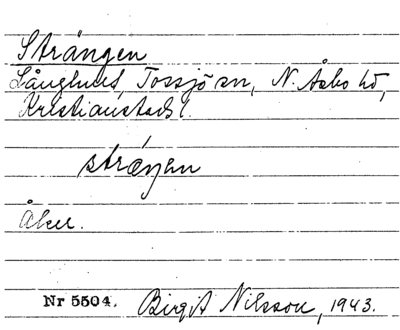 Strängen
Långhult, Tossjö sn, N. Åsbo hd,
Kristianstads l.
stræŋen
Åker.
Nr 5504. Birgit Nilsson, 1943.